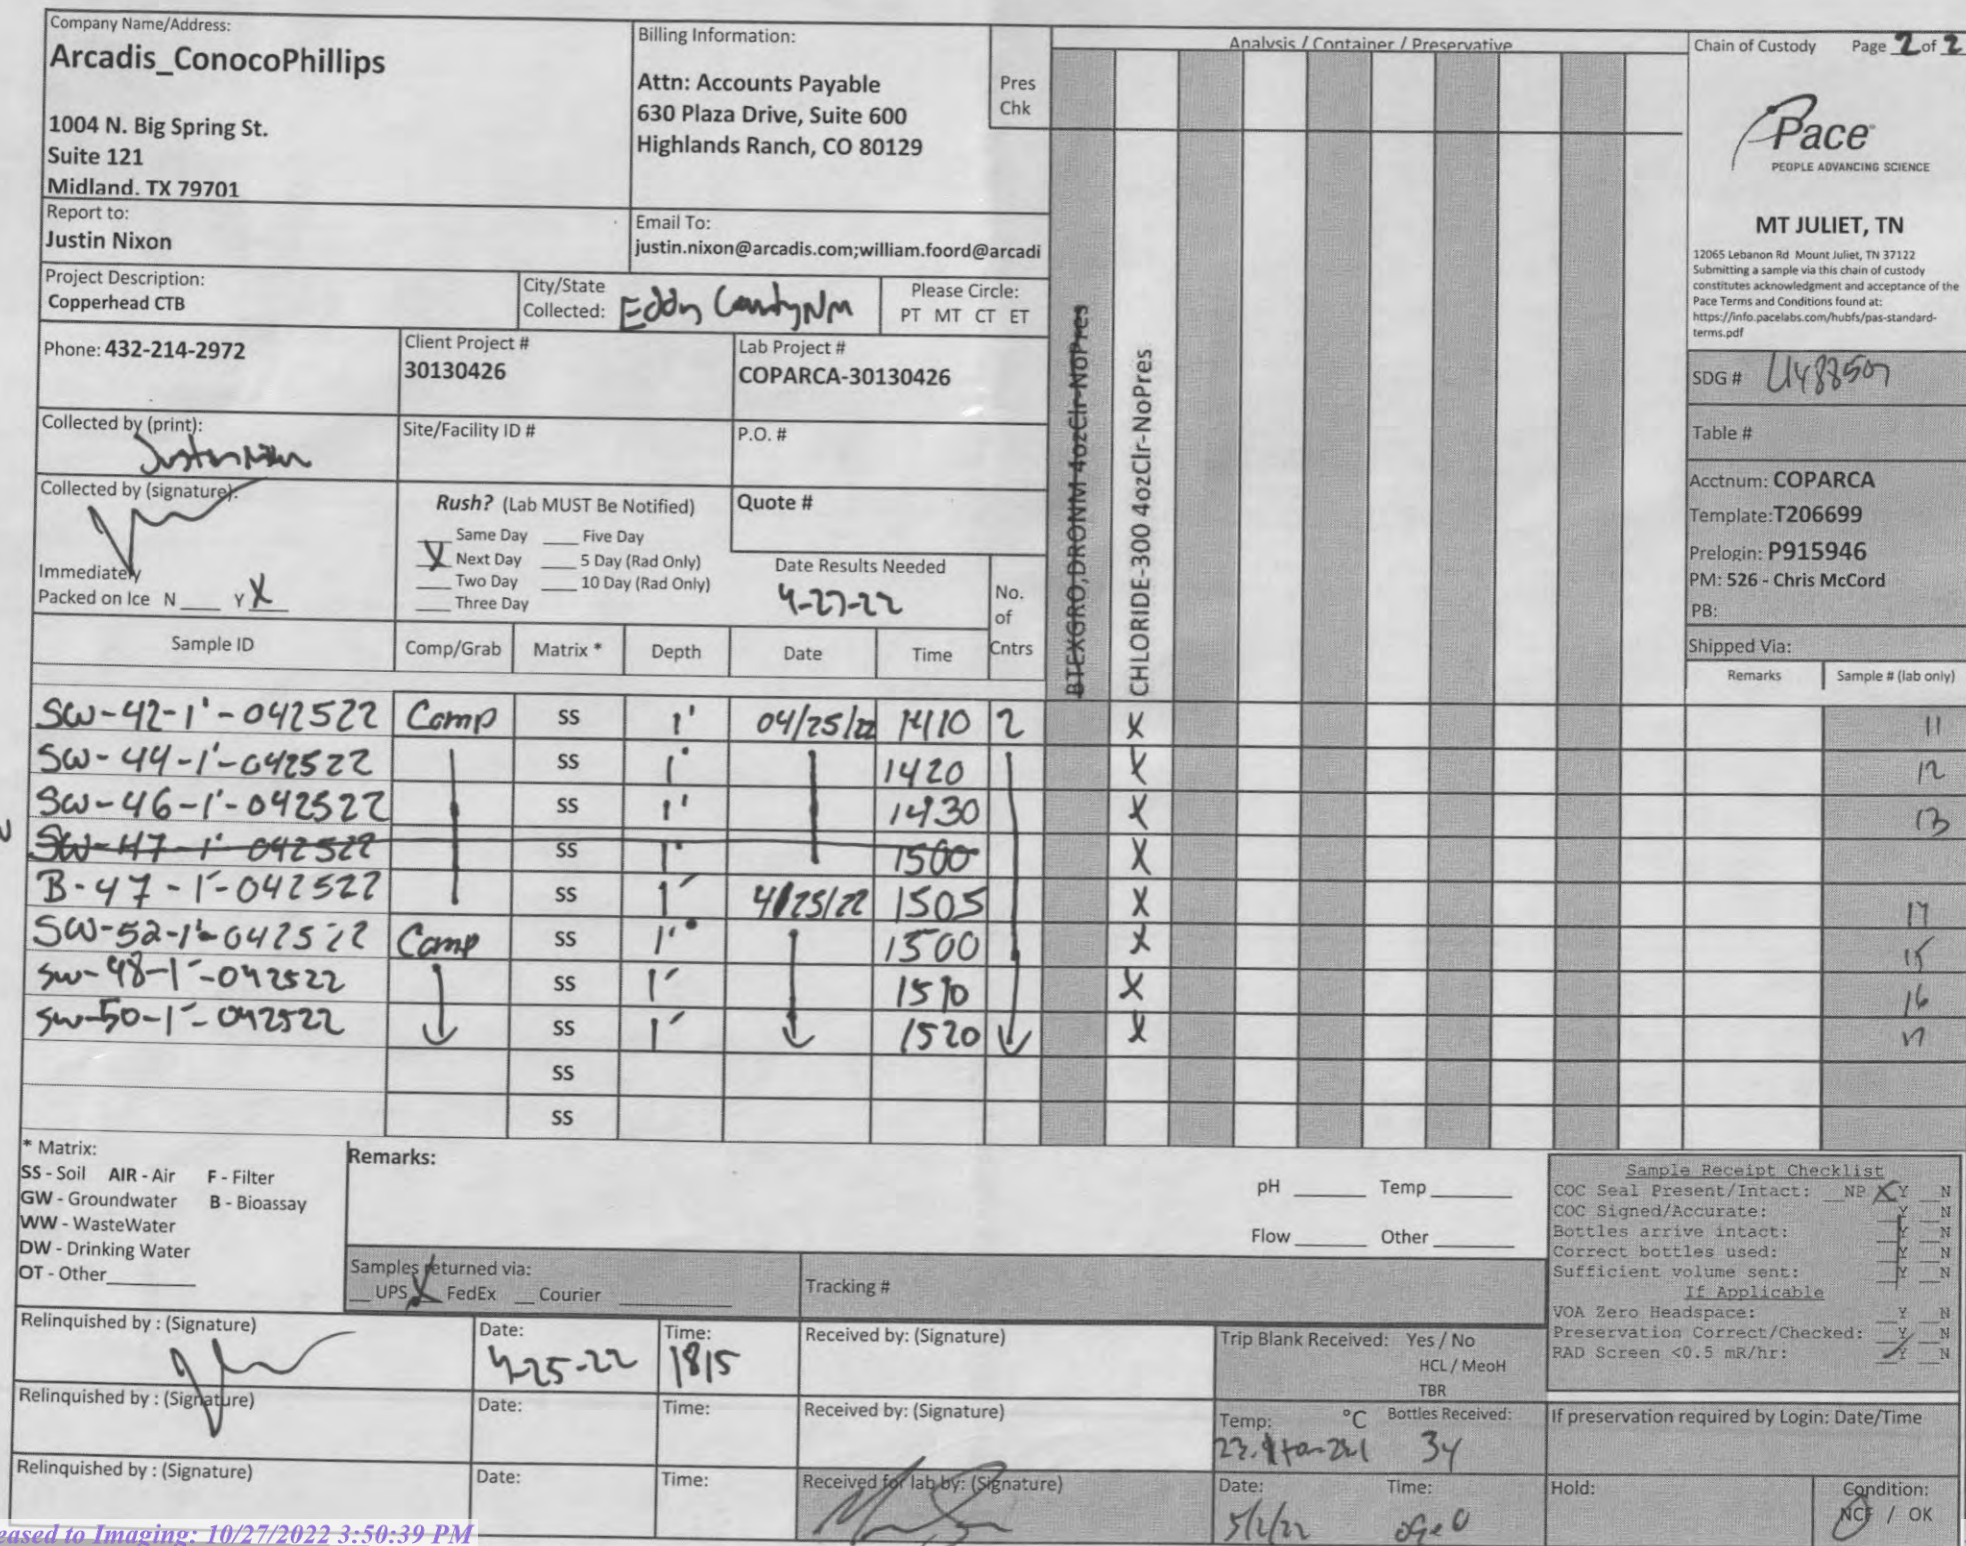 Company Name/Address:
Arcadis_ConocoPhillips
1004 N. Big Spring St.
Suite 121
Midland. TX 79701
Billing Information:
Attn: Accounts Payable
630 Plaza Drive, Suite 600
Highlands Ranch, CO 80129
Pres
Chk
Analysis / Container / Preservative
Chain of Custody Page 2 of 2
Pace
PEOPLE ADVANCING SCIENCE
MT JULIET, TN
12065 Lebanon Rd Mount Juliet, TN 37122
Submitting a sample via this chain of custody
constitutes acknowledgment and acceptance of the
Pace Terms and Conditions found at:
https://info.pacelabs.com/hubfs/pas-standard-
terms.pdf
Report to:
Justin Nixon
Email To:
justin.nixon@arcadis.com;william.foord@arcadi
Project Description:
Copperhead CTB
City/State
Collected: Eddy County NM
Please Circle:
PT MT CT ET
Phone: 432-214-2972
Client Project #
30130426
Lab Project #
COPARCA-30130426
SDG #
Table #
Collected by (print):
Justin Nixon
Site/Facility ID #
P.O. #
Collected by (signature):
Rush? (Lab MUST Be Notified)
Same Day Five Day
X Next Day 5 Day (Rad Only)
Two Day 10 Day (Rad Only)
Three Day
Quote #
Date Results Needed
4-27-22
Immediately
Packed on Ice N ___ Y X
No.
of
Cntrs
BTEXGRO,DRONM 4ozClr-NoPres
CHLORIDE-300 4ozClr-NoPres
Acctnum: COPARCA
Template:T206699
Prelogin: P915946
PM: 526 - Chris McCord
PB:
Shipped Via:
Remarks Sample # (lab only)
Sample ID Comp/Grab Matrix * Depth Date Time
SW-42-1'-042522 Comp SS 1' 04/25/22 1410 2 X 11
SW-44-1'-042522 SS 1' 1420 X 12
SW-46-1'-042522 SS 1' 1430 X 13
SW-47-1'-042522 SS 1' 1500 X
B-47-1'-042522 SS 1' 4/25/22 1505 X 14
SW-52-1'-042522 Comp SS 1' 1500 X 15
SW-48-1'-042522 SS 1' 1510 X 16
SW-50-1'-042522 SS 1' 1520 X 17
SS
SS
* Matrix:
SS - Soil AIR - Air F - Filter
GW - Groundwater B - Bioassay
WW - WasteWater
DW - Drinking Water
OT - Other
Remarks:
pH Temp
Flow Other
Samples returned via:
UPS X FedEx Courier
Tracking #
Sample Receipt Checklist
COC Seal Present/Intact: NP X Y N
COC Signed/Accurate: Y N
Bottles arrive intact: Y N
Correct bottles used: Y N
Sufficient volume sent: Y N
If Applicable
VOA Zero Headspace: Y N
Preservation Correct/Checked: Y N
RAD Screen <0.5 mR/hr: Y N
Relinquished by : (Signature)
Date:
4-25-22
Time:
1815
Received by: (Signature)
Trip Blank Received: Yes / No
HCL / MeoH
TBR
Relinquished by : (Signature)
Date:
Time:
Received by: (Signature)
Temp: °C
Bottles Received:
34
If preservation required by Login: Date/Time
Relinquished by : (Signature)
Date:
Time:
Received for lab by: (Signature)
Date:
5/2/22
Time:
Hold:
Condition:
NCF / OK
eased to Imaging: 10/27/2022 3:50:39 PM